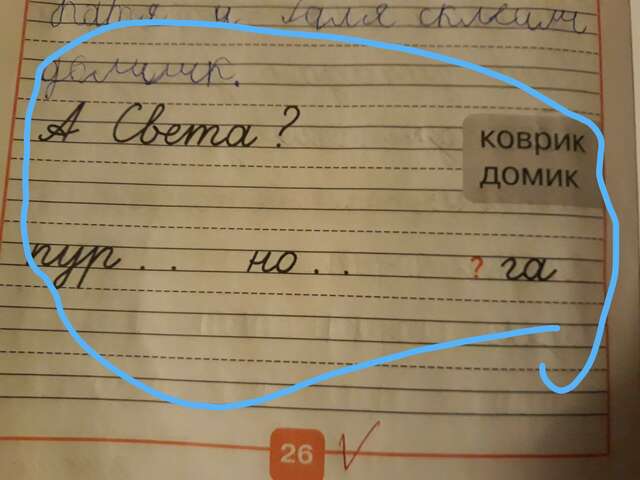 и Галя склеили
домик.
А Света?
коврик
домик
пур.. но.. ? га
26